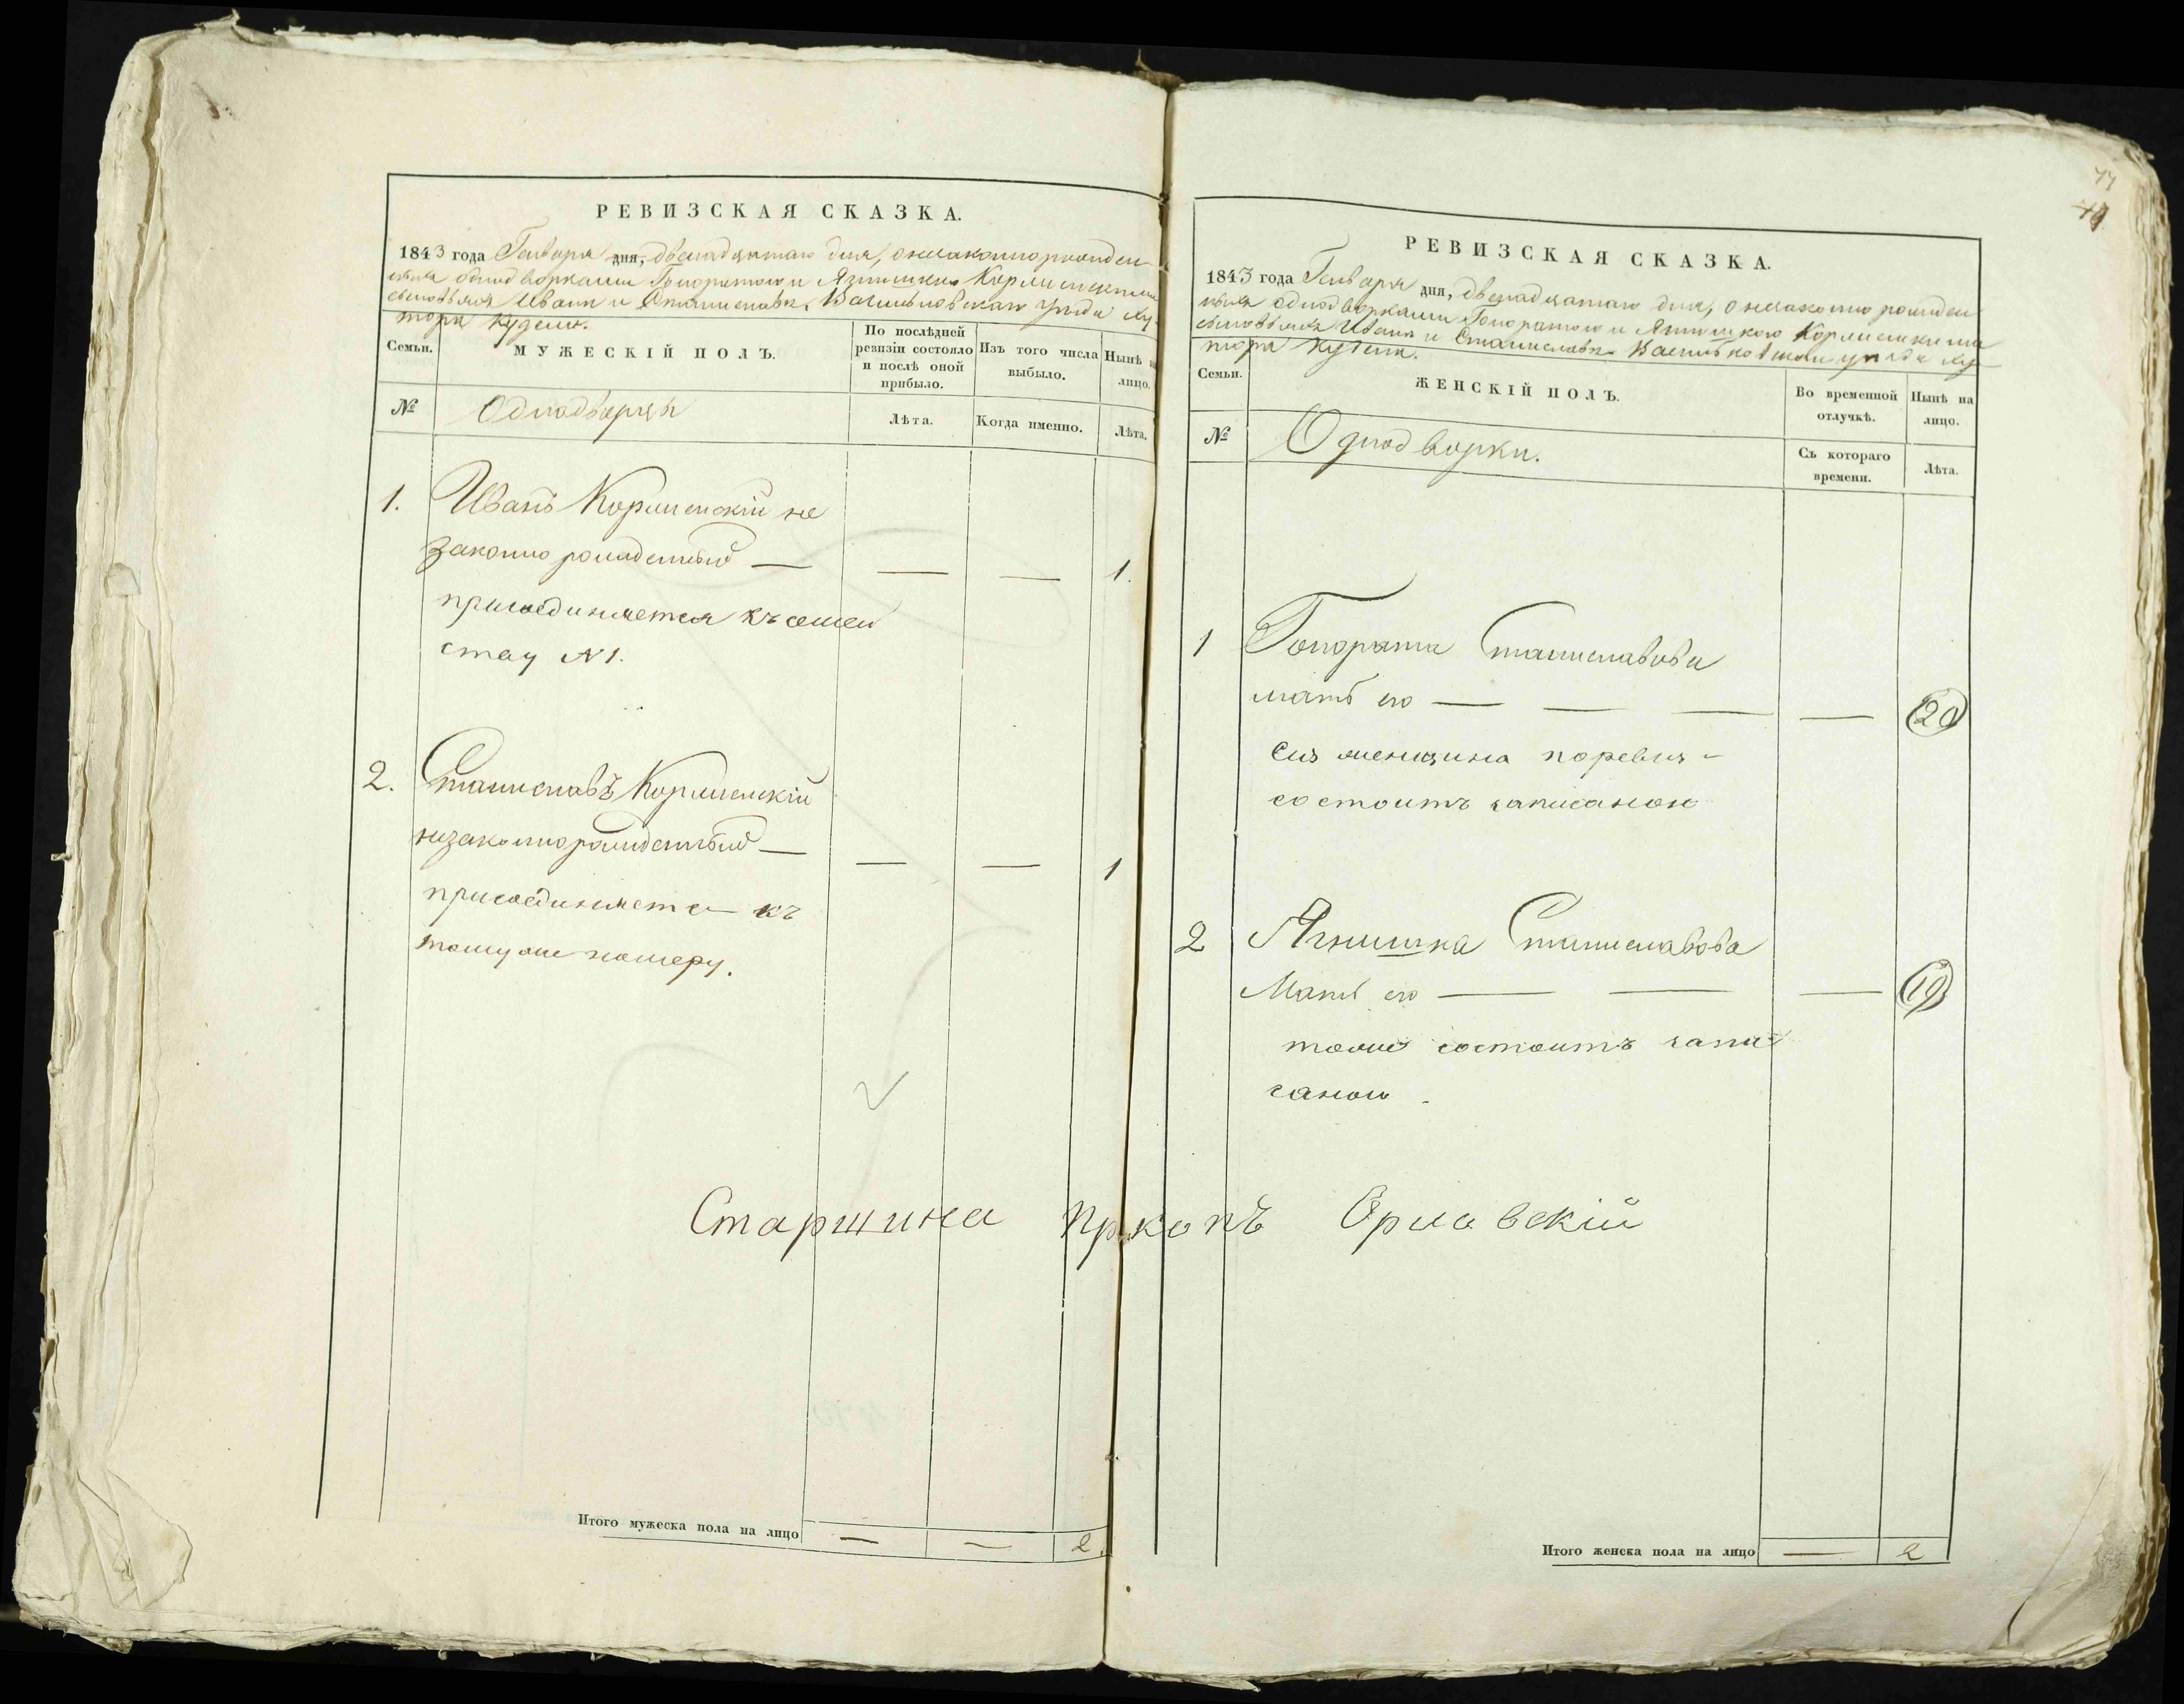 РЕВИЗСКАЯ СКАЗКА.
1843 года Генваря дня, двенадцатаго дня, о незаконнорожден
ныхъ однодворками Гоноратою и Ягнишкою
сыновьяхъ Иванѣ и Станиславѣ, Васильковскаго уѣзда ху-
тора
Семьи.
МУЖЕСКІЙ ПОЛЪ.
По послѣдней ревизіи состояло и послѣ оной прибыло.
Изъ того числа выбыло.
Нынѣ на лицо.
№
Однодворцы
Лѣта.
Когда именно.
Лѣта.
1. Иванъ не
законно рожденный —
— — 1.
присоединяется къ семей
ству №1.
2. Станиславъ
незаконнорожденный —
— — 1
присоединяется къ
тому же номеру.
Старшина Орловскій
Итого мужеска пола на лицо — — 2.
77
РЕВИЗСКАЯ СКАЗКА.
1843 года Генваря дня, двенадцатаго дня, о незаконно рожден
ныхъ однодворками Гоноратою и Ягнишкою
сыновьяхъ Иванѣ и Станиславѣ Васильковскаго уѣзда ху-
тора
Семьи.
ЖЕНСКІЙ ПОЛЪ.
Во временной отлучкѣ.
Нынѣ на лицо.
№
Однодворки.
Съ котораго времени.
Лѣта.
1 Гонората Станиславова
мать его — — — — 20
сія женщина по ревизіи
состоитъ записаною
2 Ягнишка Станиславова
Мать его — — — 19
тоже состоитъ запи-
саною.
Итого женска пола на лицо — 2